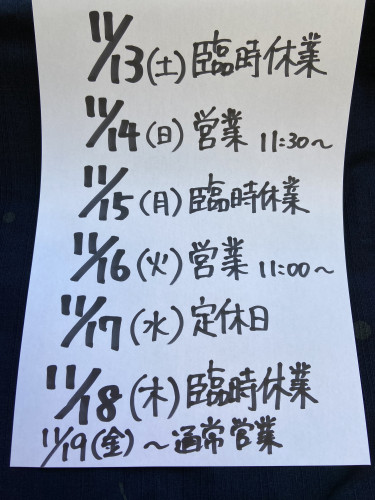 11/13(土)臨時休業
11/14(日)営業 11:30~
11/15(月)臨時休業
11/16(火)営業 11:00~
11/17(水)定休日
11/18(木)臨時休業
11/19(金)~通常営業